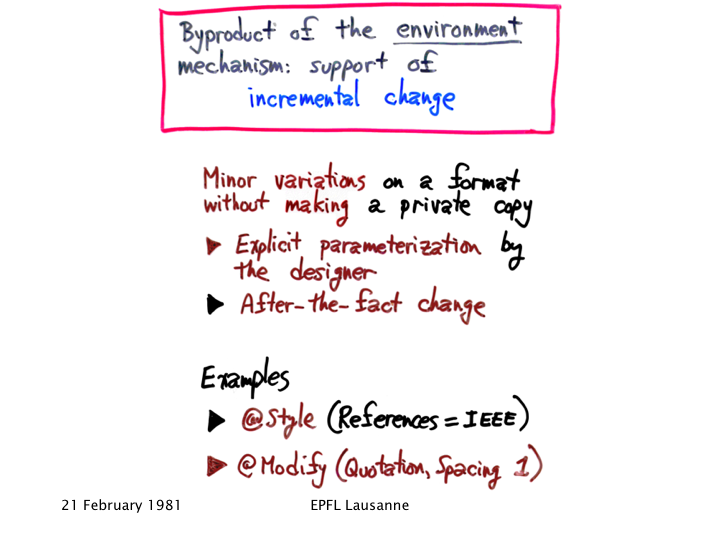 Byproduct of the environment
mechanism: support of
incremental change
Minor variations on a format
without making a private copy
► Explicit parameterization by
the designer
► After-the-fact change
Examples
► @Style (References = IEEE)
► @Modify (Quotation, Spacing 1)
21 February 1981 EPFL Lausanne